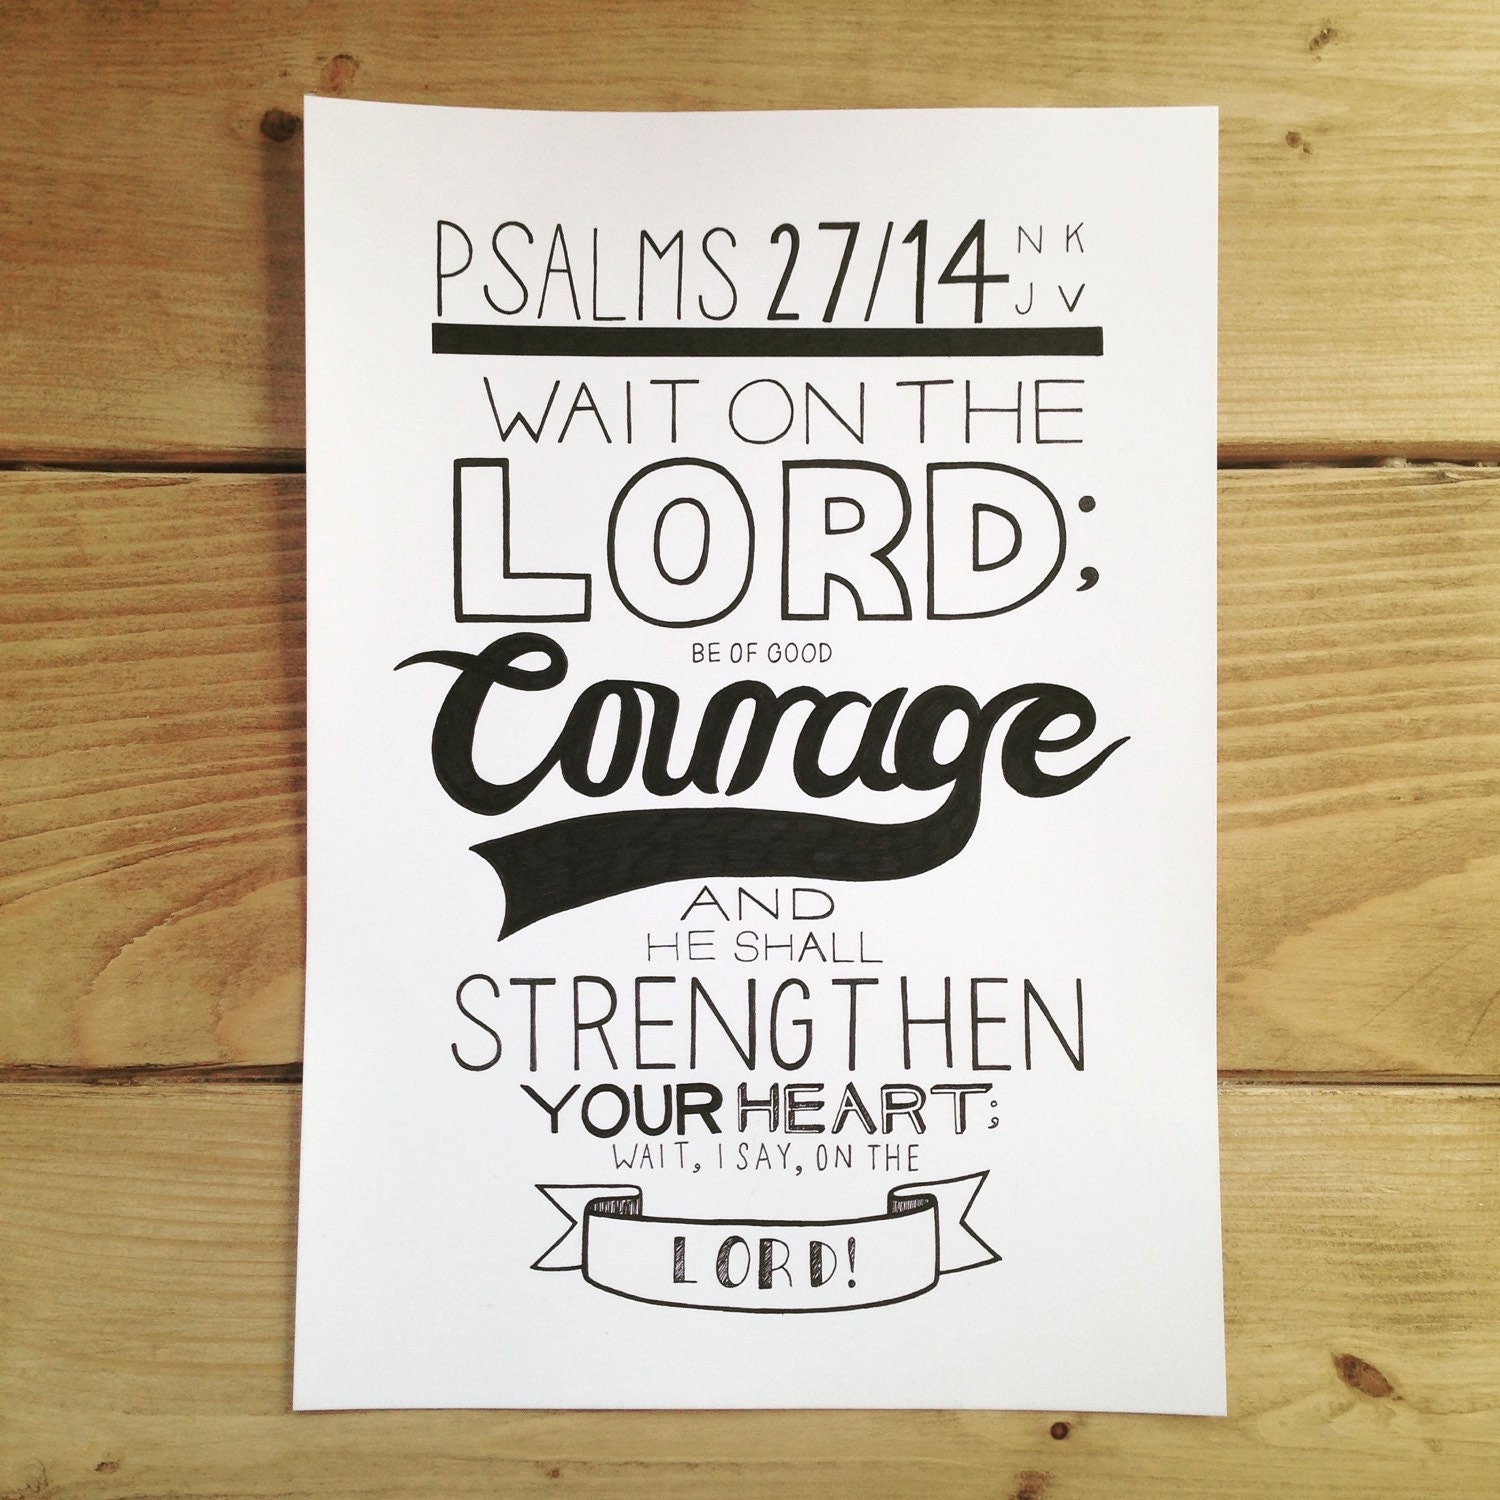 PSALMS 27/14 NK
JV
WAIT ON THE
LORD;
BE OF GOOD
Courage
AND
HE SHALL
STRENGTHEN
YOUR HEART;
WAIT, I SAY, ON THE
LORD!